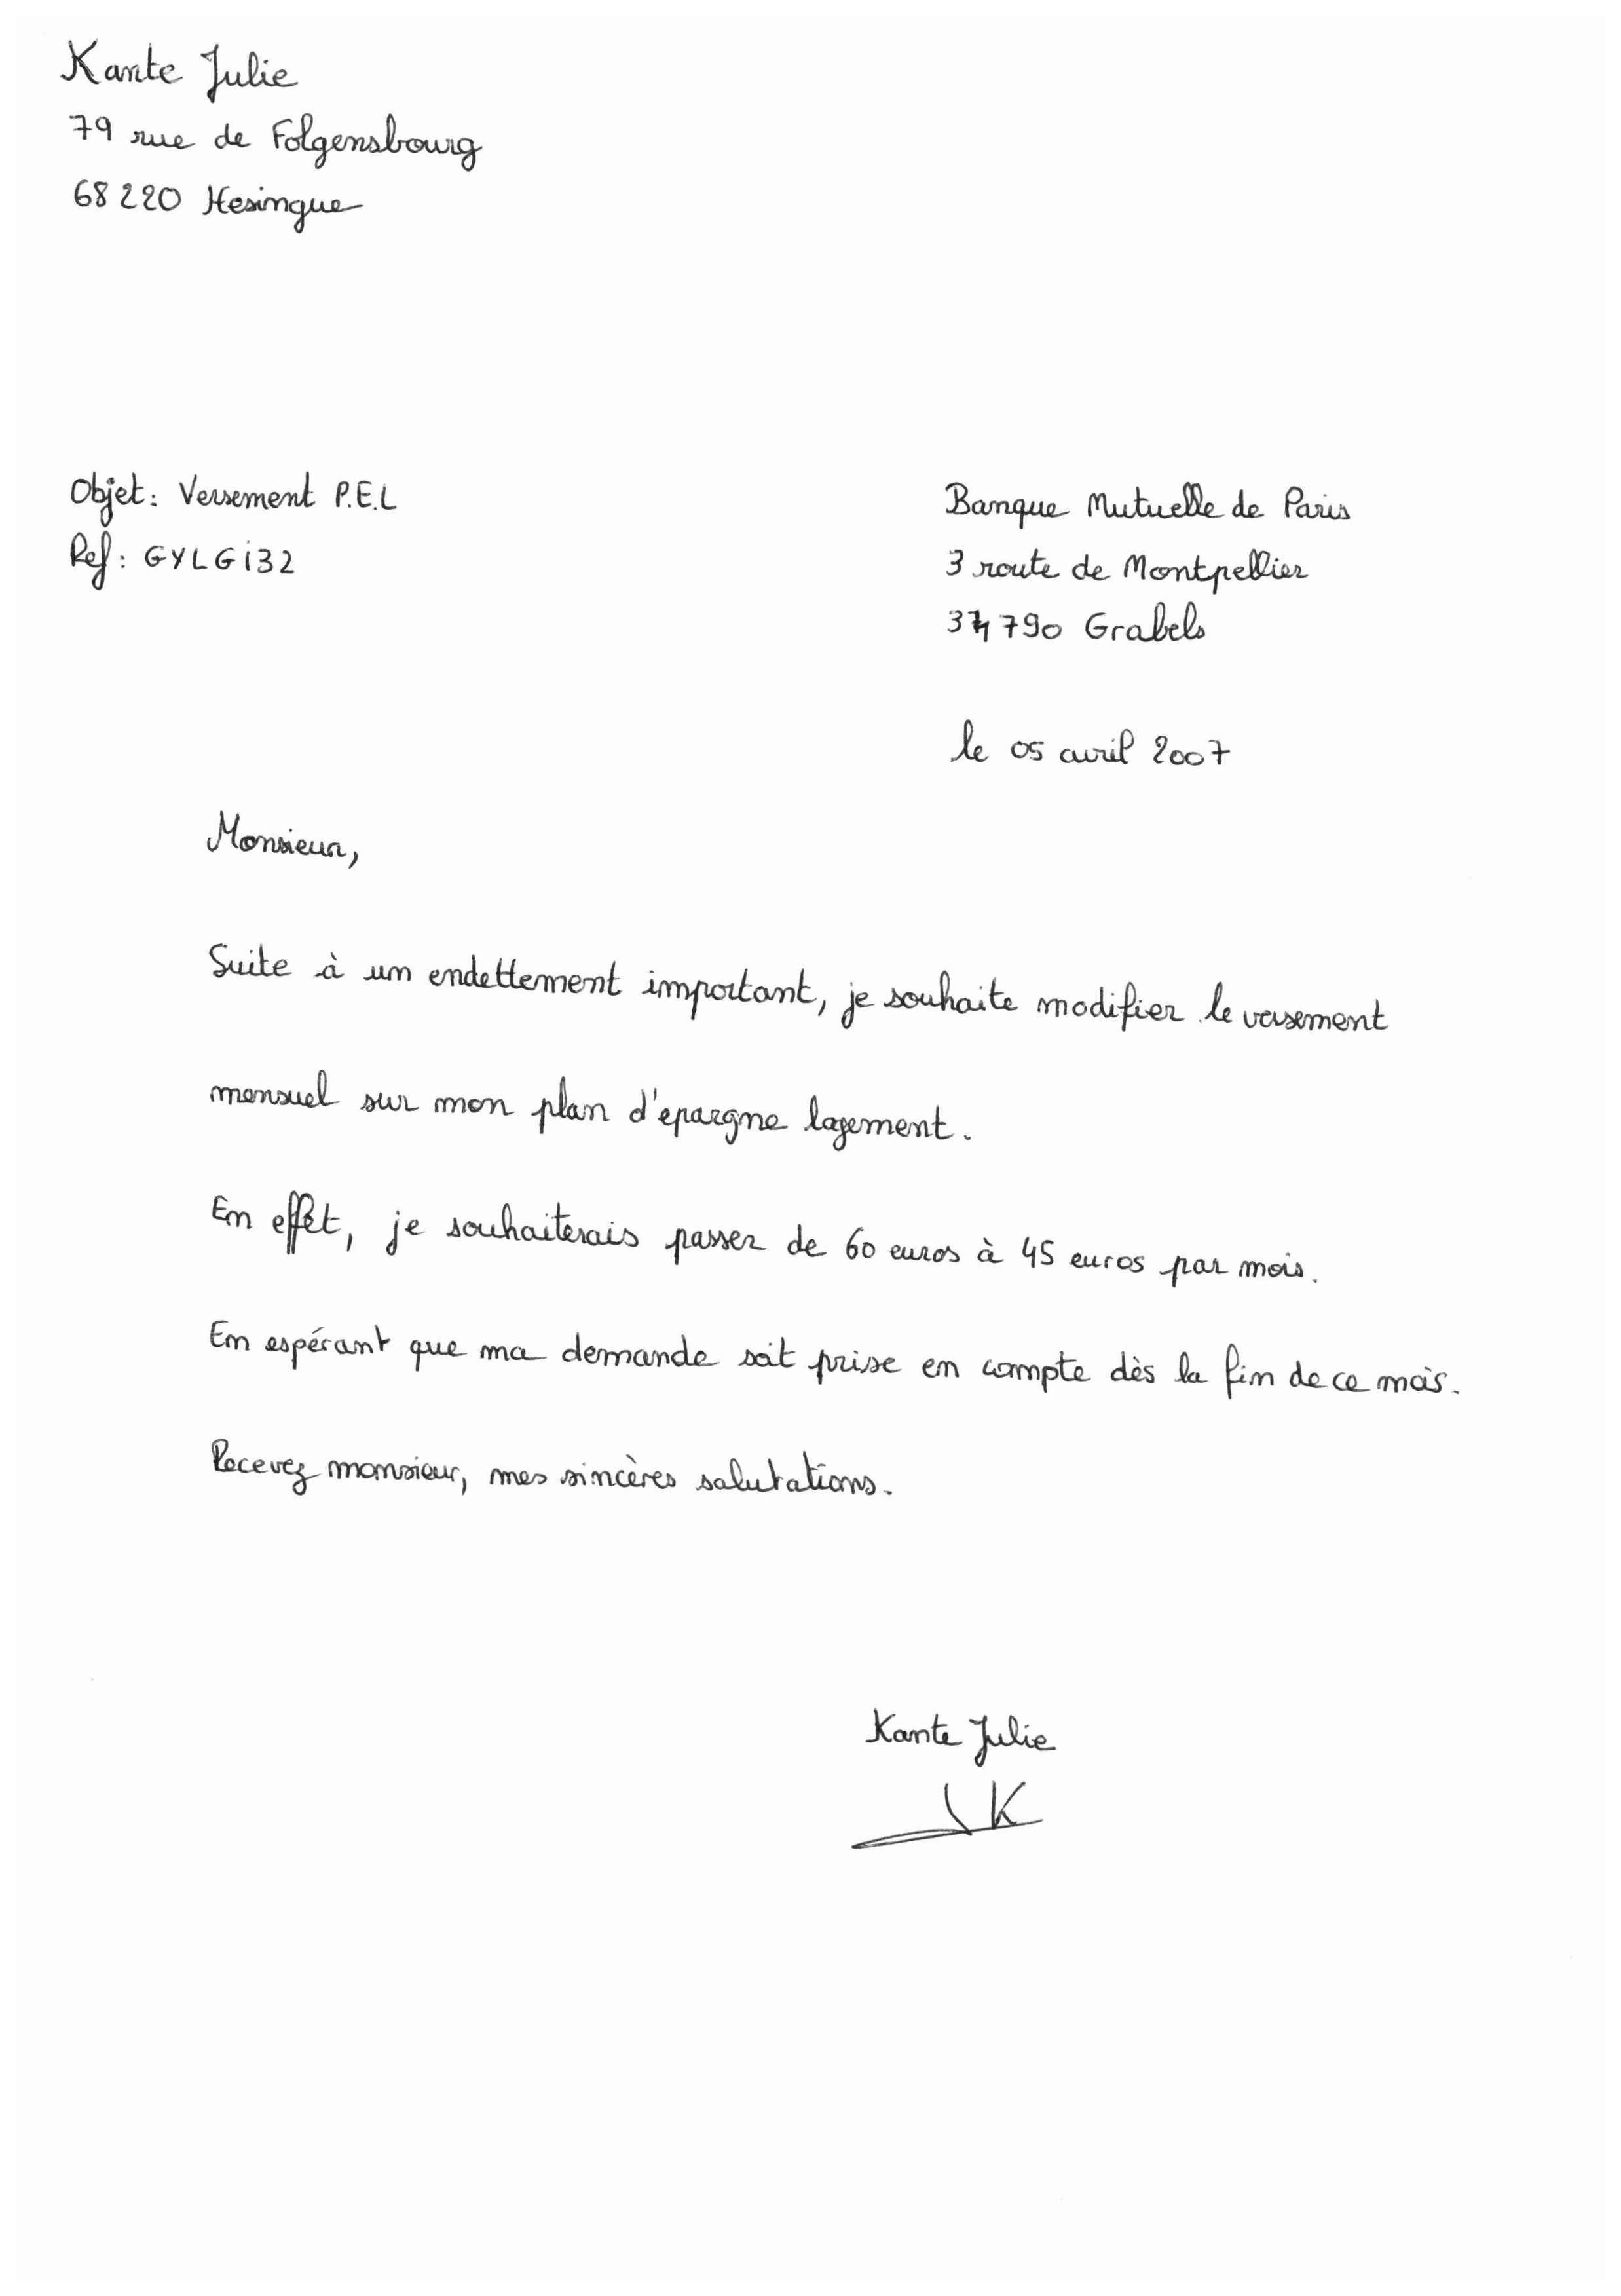 Kante Julie
79 rue de Folgensbourg
68220 Hesingue
Objet : Versement P.E.L
Ref : GYLGi32
Banque Mutuelle de Paris
3 route de Montpellier
34790 Grabels
le 05 avril 2007
Monsieur,
Suite à un endettement important, je souhaite modifier le versement
mensuel sur mon plan d'epargne logement.
En effet, je souhaiterais passer de 60 euros à 45 euros par mois.
En espérant que ma demande soit prise en compte dès la fin de ce mois.
Recevez monsieur, mes sincères salutations.
Kante Julie
JK